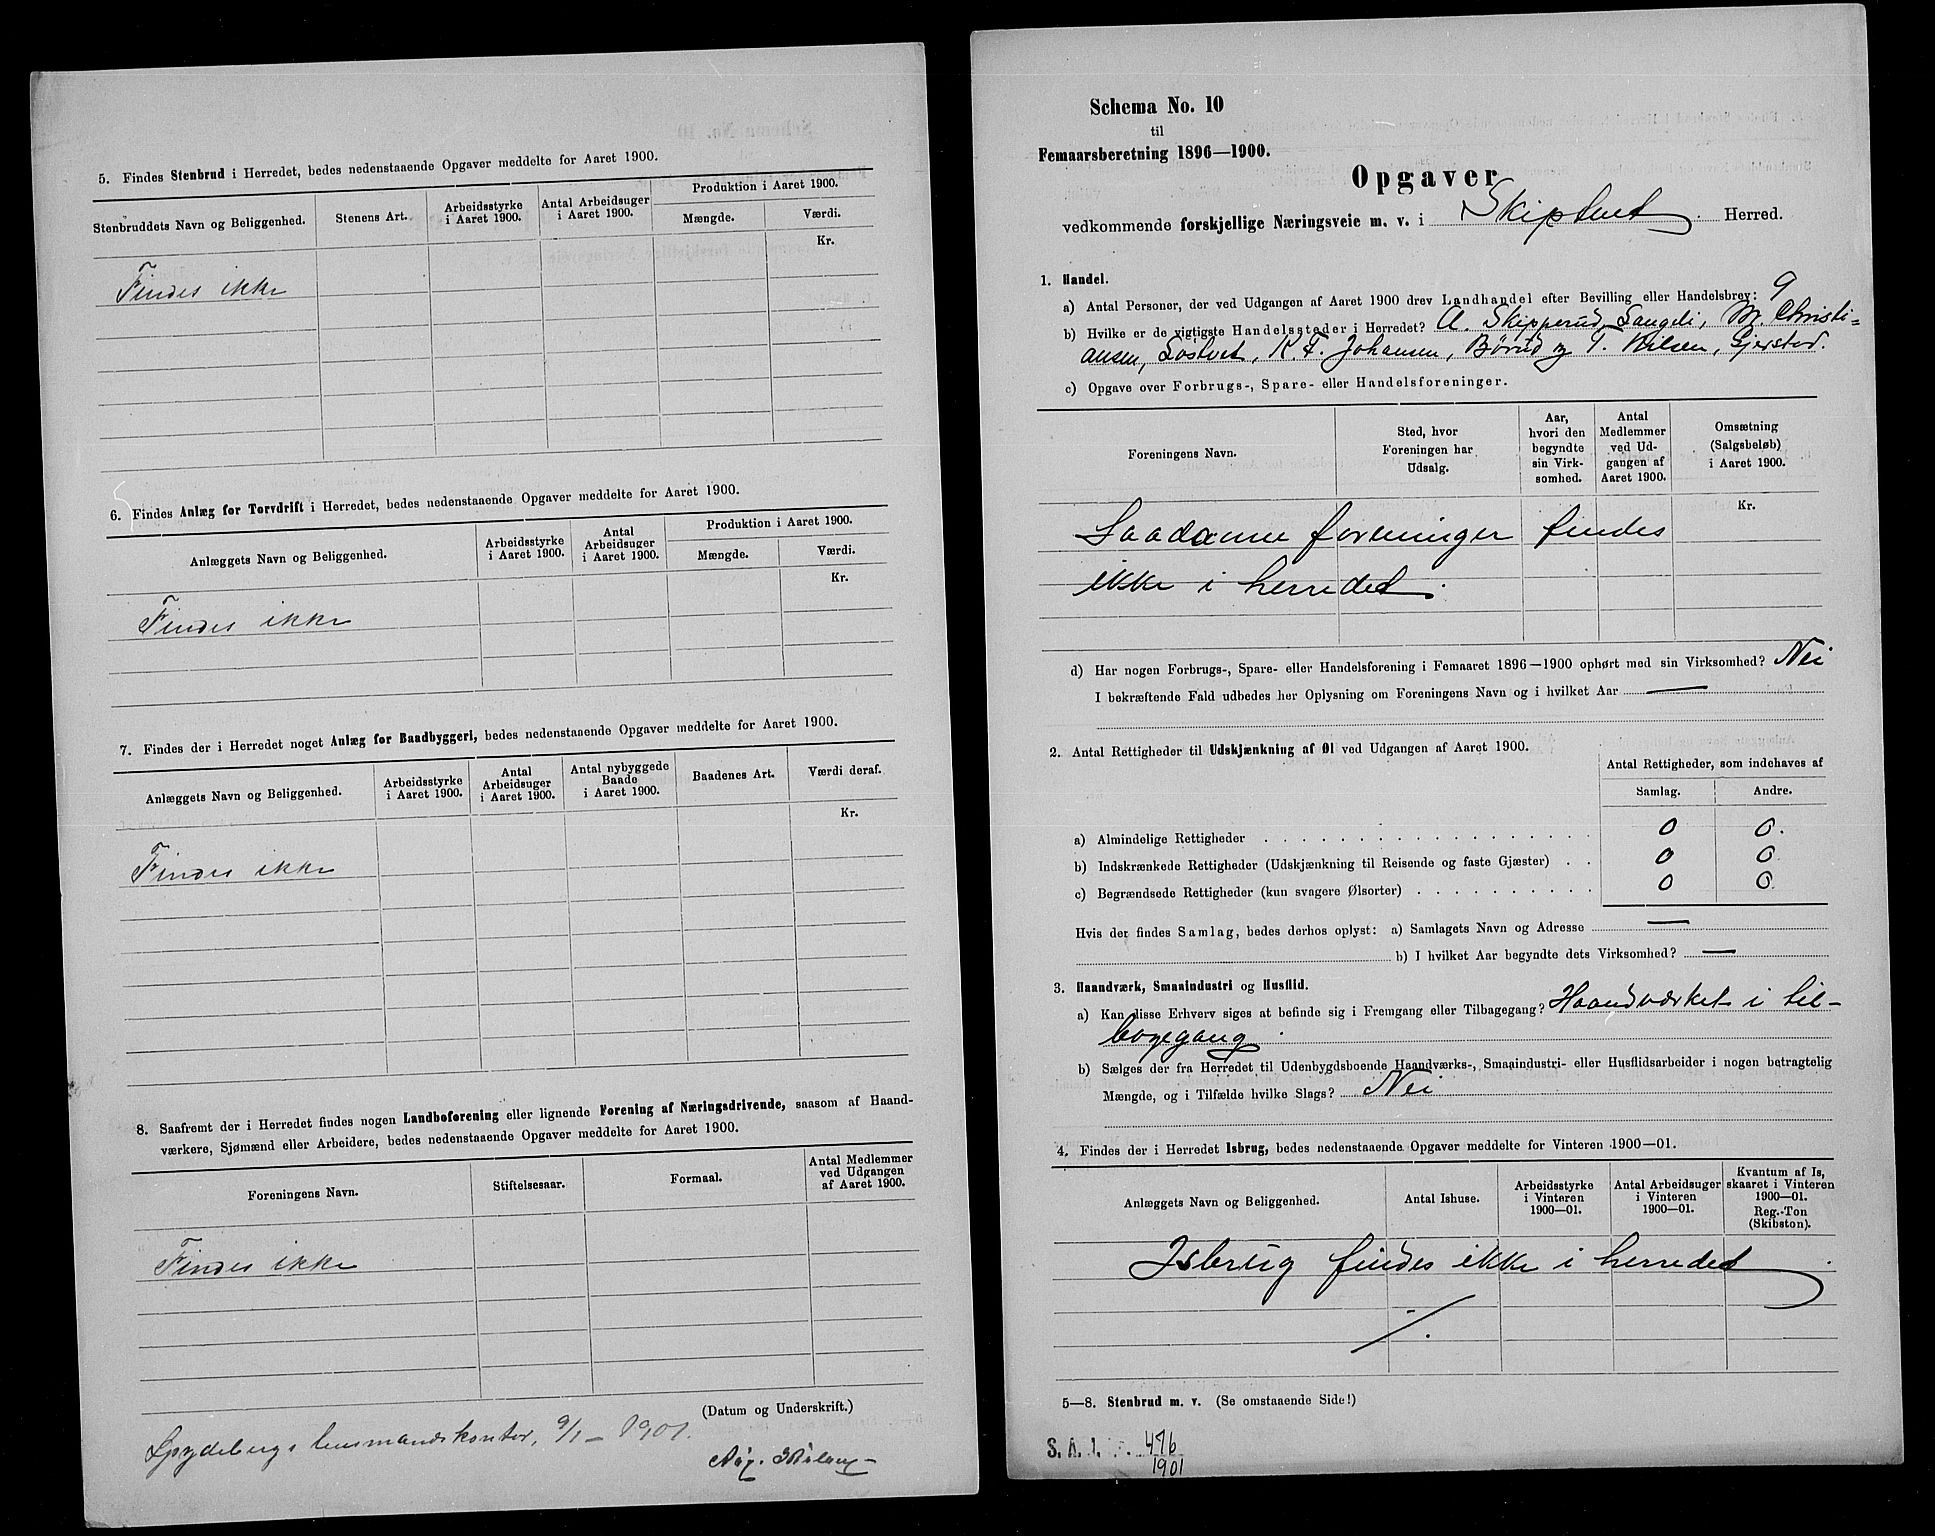 5. Findes Stenbrud i Herredet, bedes nedenstaaende Opgaver meddelte for Aaret 1900.
Stenbruddets Navn og Beliggenhed. Stenens Art. Arbeidsstyrke i Aaret 1900. Antal Arbeidsuger i Aaret 1900. Produktion i Aaret 1900. Mængde. Værdi.
Kr.
Findes ikke
6. Findes Anlæg for Torvdrift i Herredet, bedes nedenstaaende Opgaver meddelte for Aaret 1900.
Anlæggets Navn og Beliggenhed. Arbeidsstyrke i Aaret 1900. Antal Arbeidsuger i Aaret 1900. Produktion i Aaret 1900. Mængde. Værdi.
Kr.
Findes ikke
7. Findes der i Herredet noget Anlæg for Baadbyggeri, bedes nedenstaaende Opgaver meddelte for Aaret 1900.
Anlæggets Navn og Beliggenhed. Arbeidsstyrke i Aaret 1900. Antal Arbeidsuger i Aaret 1900. Antal nybyggede Baade i Aaret 1900. Baadenes Art. Værdi deraf.
Kr.
Findes ikke
8. Saafremt der i Herredet findes nogen Landboforening eller lignende Forening af Næringsdrivende, saasom af Haand-
værkere, Sjømænd eller Arbeidere, bedes nedenstaaende Opgaver meddelte for Aaret 1900.
Foreningens Navn. Stiftelsesaar. Formaal. Antal Medlemmer ved Udgangen af Aaret 1900.
Findes ikke
(Datum og Underskrift.)
Spydebergs lensmandskontor, 9/1 – 1901.
Schema No. 10
til
Femaarsberetning 1896—1900.
Opgaver
vedkommende forskjellige Næringsveie m. v. i Skiptvet Herred.
1. Handel.
a) Antal Personer, der ved Udgangen af Aaret 1900 drev Landhandel efter Bevilling eller Handelsbrev: 9
b) Hvilke er de vigtigste Handelssteder i Herredet? A. Skipperud, Langli, M. Christi=
ansen, Lostvet, K. F. Johansen, Børud og T. Nilsen, Gjerstad.
c) Opgave over Forbrugs-, Spare- eller Handelsforeninger.
Foreningens Navn. Sted, hvor Foreningen har Udsalg. Aar, hvori den begyndte sin Virk-somhed. Antal Medlemmer ved Ud-gangen af Aaret 1900. Omsætning (Salgsbeløb) i Aaret 1900.
Kr.
Saadanne foreninger findes
ikke i herredet.
d) Har nogen Forbrugs-, Spare- eller Handelsforening i Femaaret 1896—1900 ophørt med sin Virksomhed? Nei
I bekræftende Fald udbedes her Oplysning om Foreningens Navn og i hvilket Aar —
2. Antal Rettigheder til Udskjænkning af Øl ved Udgangen af Aaret 1900.
Antal Rettigheder, som indehaves af
Samlag. Andre.
a) Almindelige Rettigheder 0 0.
b) Indskrænkede Rettigheder (Udskjænkning til Reisende og faste Gjæster) 0 0
c) Begrændsede Rettigheder (kun svagere Ølsorter) 0 0.
Hvis der findes Samlag, bedes derhos oplyst: a) Samlagets Navn og Adresse —
b) I hvilket Aar begyndte dets Virksomhed? —
3. Haandværk, Smaaindustri og Husflid.
a) Kan disse Erhverv siges at befinde sig i Fremgang eller Tilbagegang? Haandværket i til-
bagegang.
b) Sælges der fra Herredet til Udenbygdsboende Haandværks-, Smaaindustri- eller Husflidsarbeider i nogen betragtelig
Mængde, og i Tilfælde hvilke Slags? Nei
4. Findes der i Herredet Isbrug, bedes nedenstaaende Opgaver meddelte for Vinteren 1900—01.
Anlæggets Navn og Beliggenhed. Antal Ishuse. Arbeidsstyrke i Vinteren 1900—01. Antal Arbeidsuger i Vinteren 1900—01. Kvantum af Is, skaaret i Vinteren 1900—01. Reg.-Ton (Skibston).
Isbrug findes ikke i herredet
5—8. Stenbrud m. v. (Se omstaaende Side!)
476
1901